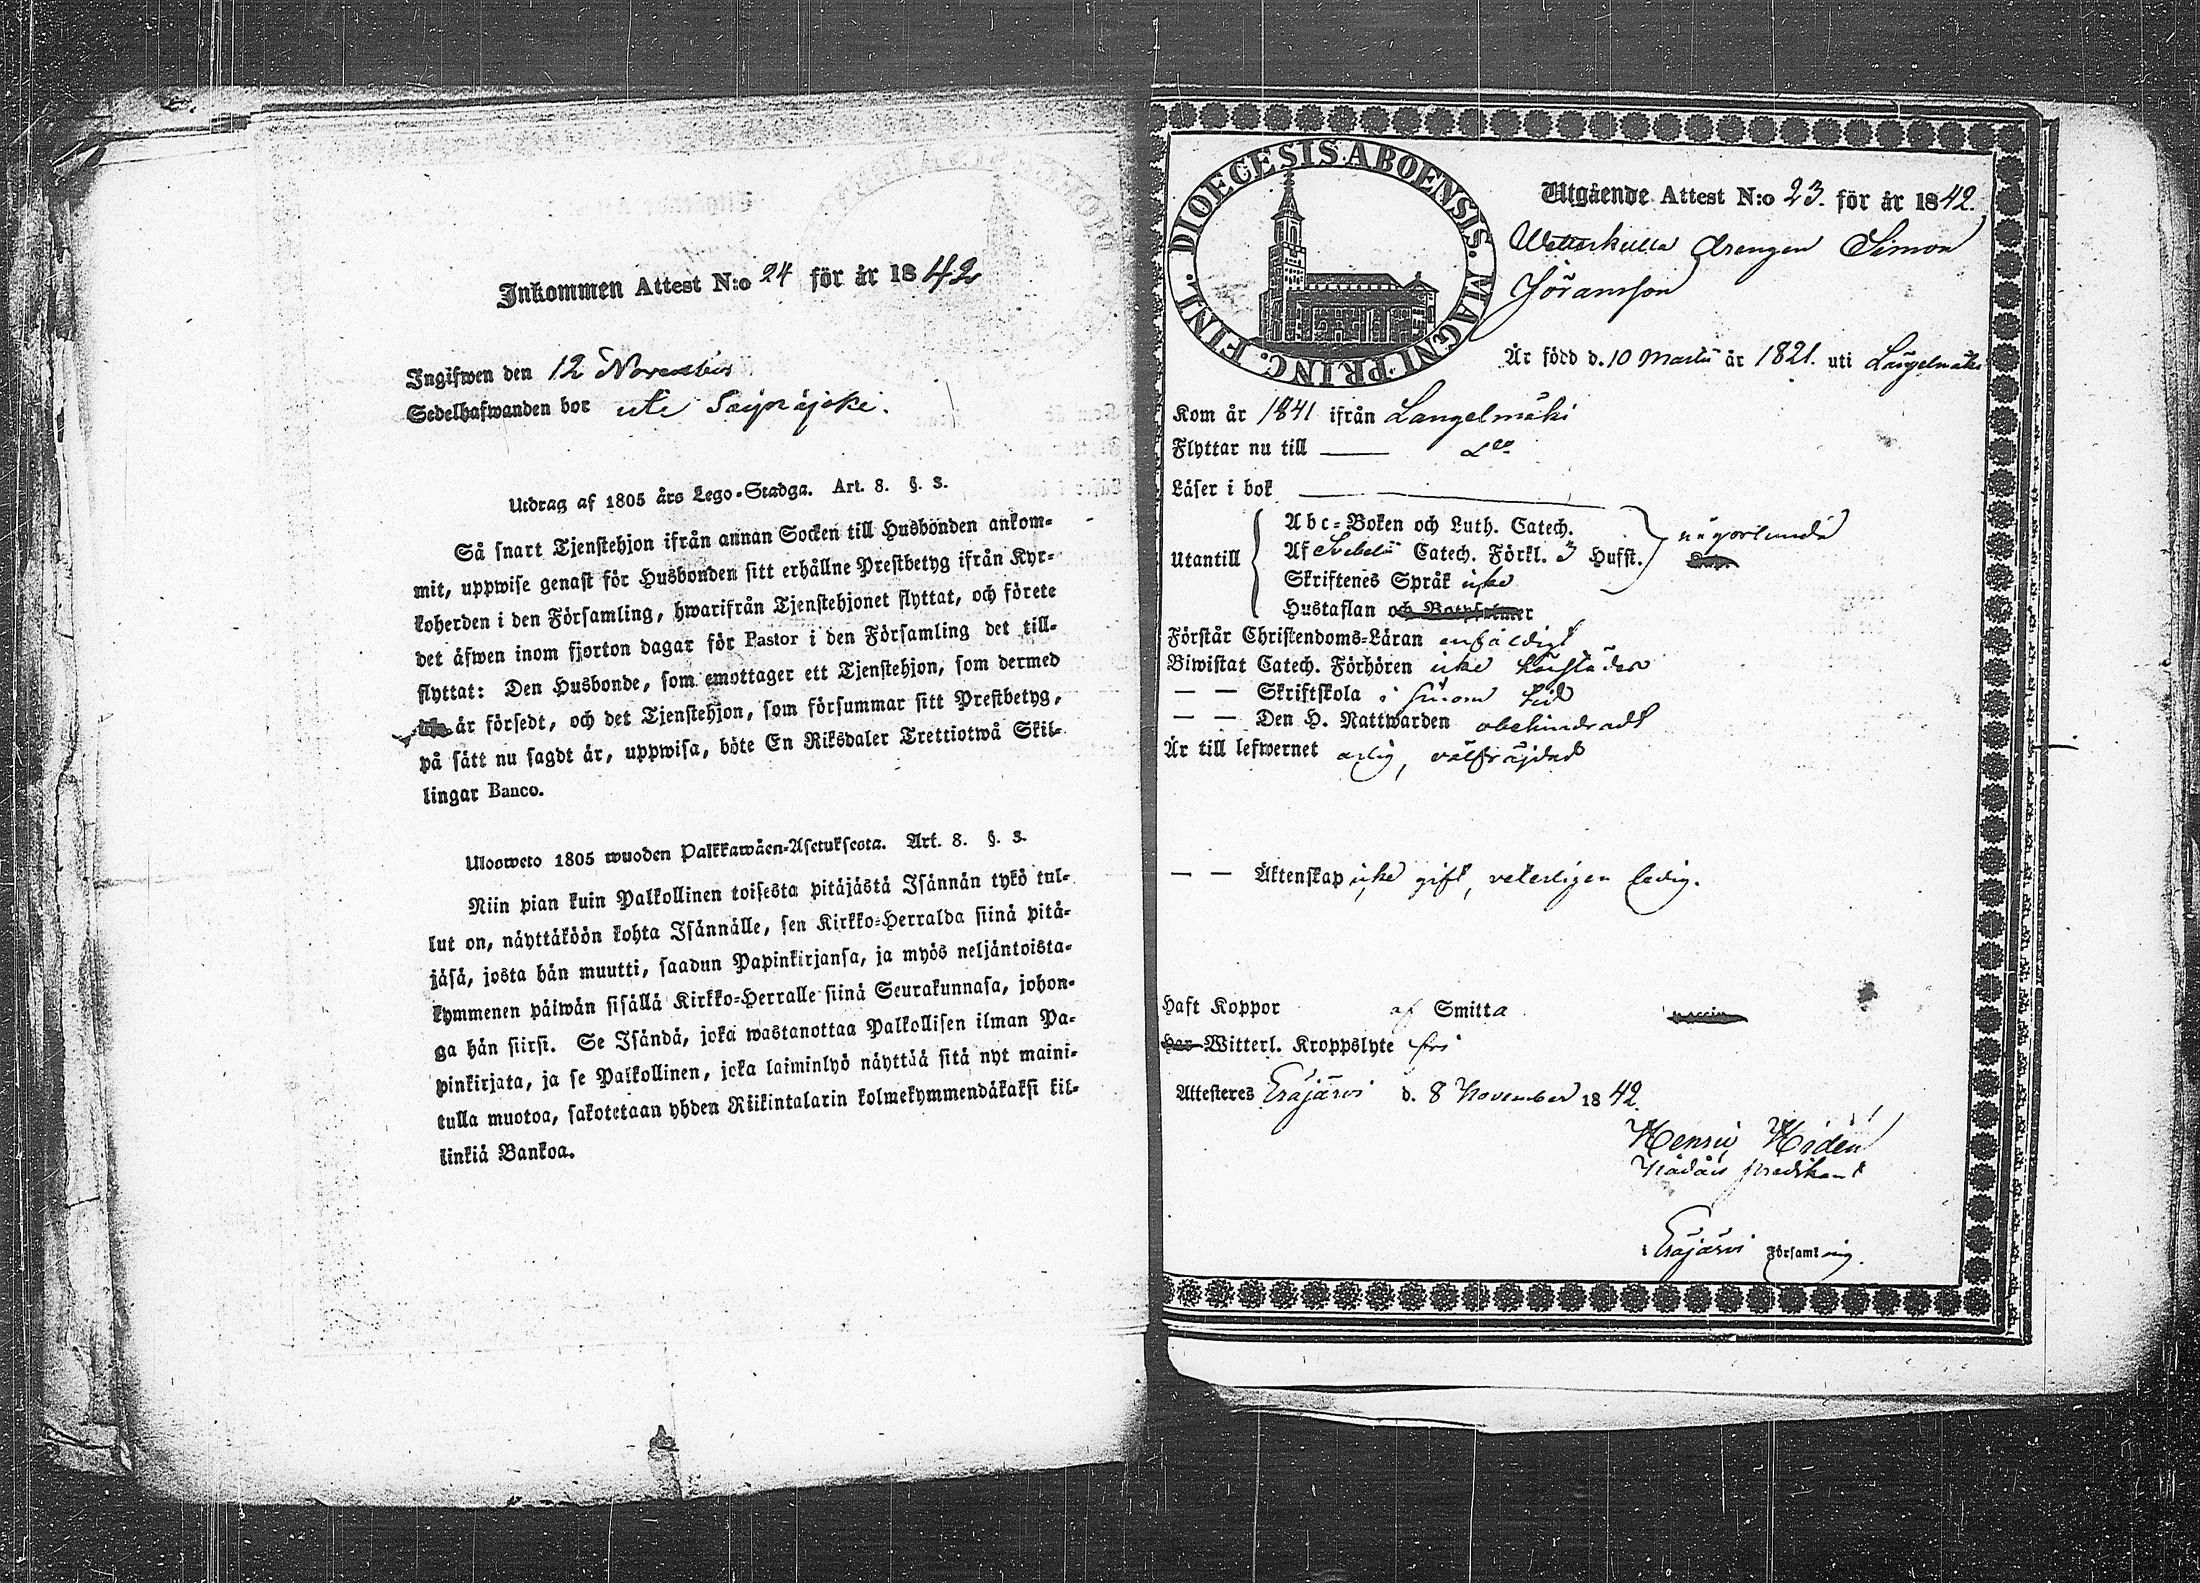 Inkommen Attest N:o 24 för år 1842
Ingifwen den 12 Novembris
Sedelhafwanden bor
Utdrag af 1805 års Lego-Stadga. Art. 8. §. 3.
Så snart Tjenstehjon ifrån annan Socken till Husbonden ankom-
mit, uppwise genast för Husbonden sitt erhållne Prestbetyg ifrån Kyr-
koherden i den Församling, hwarifrån Tjenstehjonet flyttat, och förete
det äfwen inom fjorton dagar för Pastor i den Församling det till-
flyttat: Den Husbonde, som emottager ett Tjenstehjon, som dermed
är försedt, och det Tjenstehjon, som försummar sitt Prestbetyg,
på sätt nu sagdt är, uppwisa, böte En Riksdaler Trettiotwå Skil-
lingar Banco.
Ulosweto 1805 wuoden Palkkawäen-Asetuksesta. Art. 8. §. 3.
Niin pian kuin Palkollinen toisesta pitäjästä Isännän tykö tul-
lut on, näyttäköön kohta Isännälle, sen Kirkko-Herralda siinä pitä-
jäsä, josta hän muutti, saadun Papinkirjansa, ja myös neljäntoista-
kymmenen päiwän sisällä Kirkko-Herralle siinä Seurakunnasa, johon-
ga hän siirsi. Se Isändä, joka wastanottaa Palkollisen ilman Pa-
pinkirjata, ja se Palkollinen, joka laiminlyö näyttää sitä nyt maini-
tulla muotoa, sakotetaan yhden Riikintalarin kolmekymmendäkaksi kil-
linkiä Bankoa.
DIOECESIS ABOENSIS. MAGNI PRINC. FINL.
Utgående Attest N:o 23. för år 1842.
drengen Simon
Göransson
Är född d. 10 Martii år 1821. uti Längelmäki
Kom år 1841 ifrån Langelmäki
Flyttar nu till
Läser i bok
Utantill
Abc-Boken och Luth. Catech.
Af Svebelii Catech. Förkl. 3 Hufst.
Skriftenes Språk icke
Hustaflan och Botpsalmer
någorlunda
Förstår Christendoms-Läran enfaldigt
Biwistat Catech. Förhören icke
— — Skriftskola i sinom tid
— — Den H. Nattwarden obehindradt
Är till lefwernet ärlig, välfräjdad
— — Äktenskap icke gift, veterligen ledig.
Haft Koppor af Smitta
Har Witterl. Kroppslyte fri
Attesteres Eräjärvi d. 8 November 1842.
Henric Hidén
predikant
i Eräjärvi Församling.